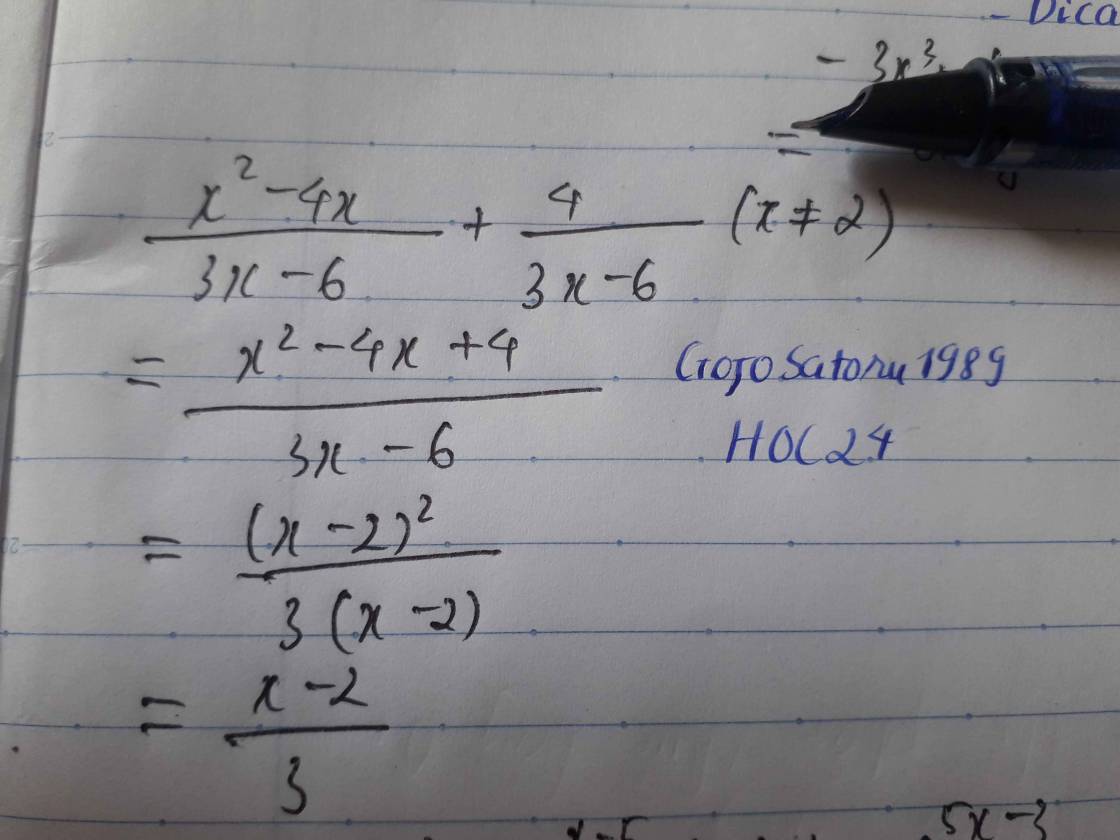 - Dica
- 3x³
=
x² - 4x / 3x - 6 + 4 / 3x - 6 (x ≠ 2)
= x² - 4x + 4 / 3x - 6
GojoSatoru1989
HOC24
= (x - 2)² / 3(x - 2)
= x - 2 / 3
5x - 3